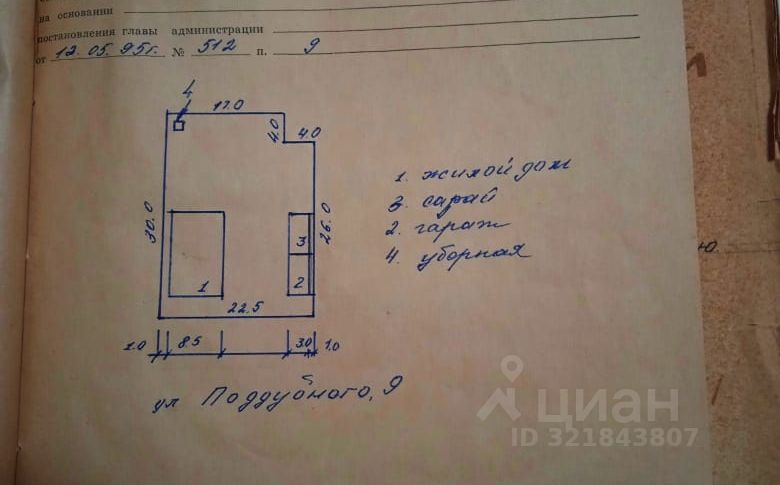 на основании
постановления главы администрации
от 12.05.95г. № 512 п. 9
4
17.0
4.0
4.0
30.0
26.0
3
1
2
22.5
1.0 8.5 3.0 1.0
1. жилой дом
3. сарай
2. гараж
4. уборная
ю.
ул Поддубного, 9
циан
ID 321843807